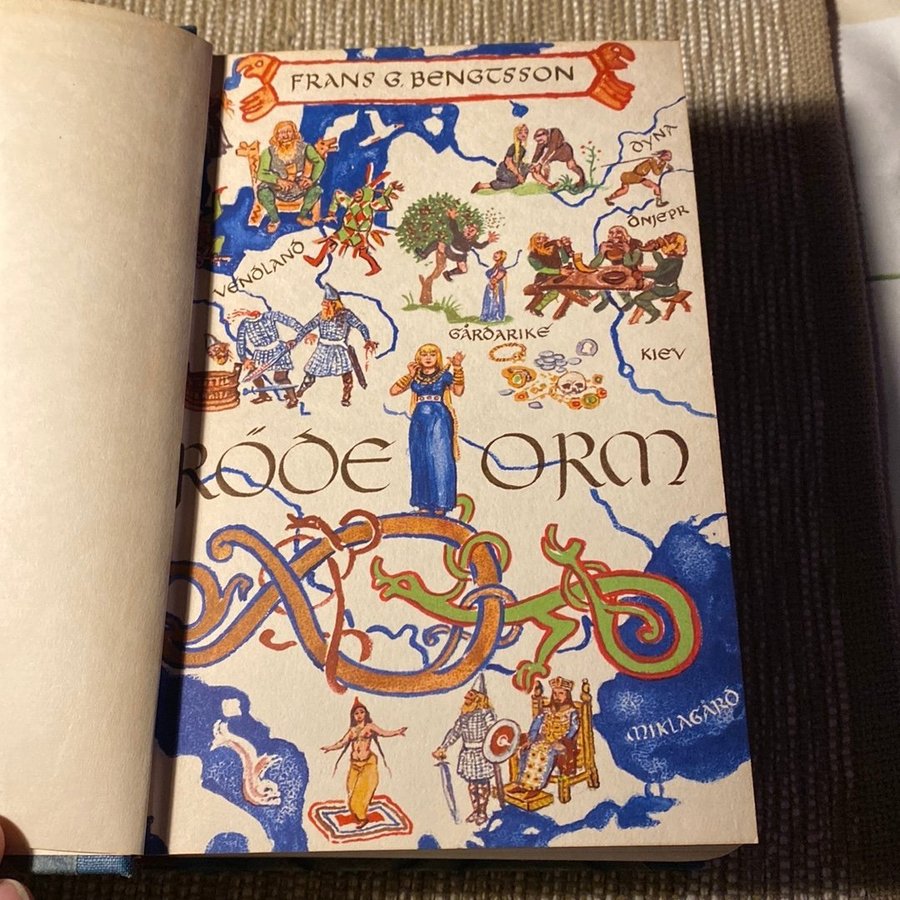 FRANS G. BENGTSSON
DYNA
DNJEPR
VENDLAND
GÅRDARIKE
KIEV
RÖDE ORM
MIKLAGÅRD